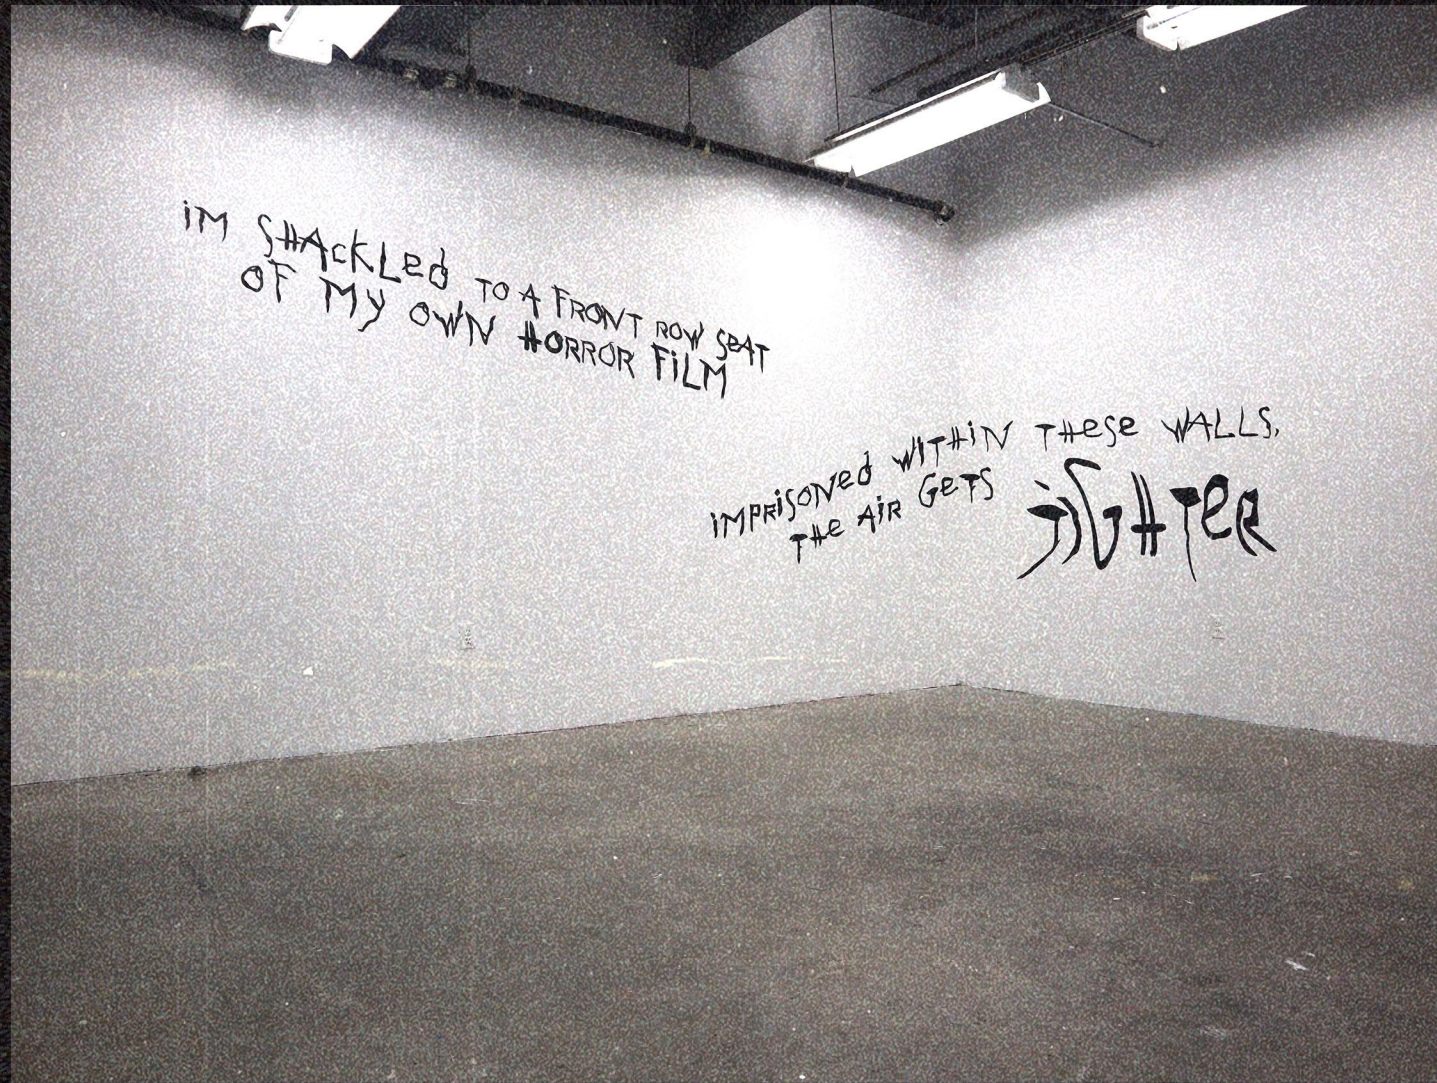 iM SHAcKLed TO A FRONT ROW SeAT
OF MY OWN HORROR FiLM
iMPRiSONed WITHiN THeSe WALLS,
THe AiR GeTS TiGHTeR